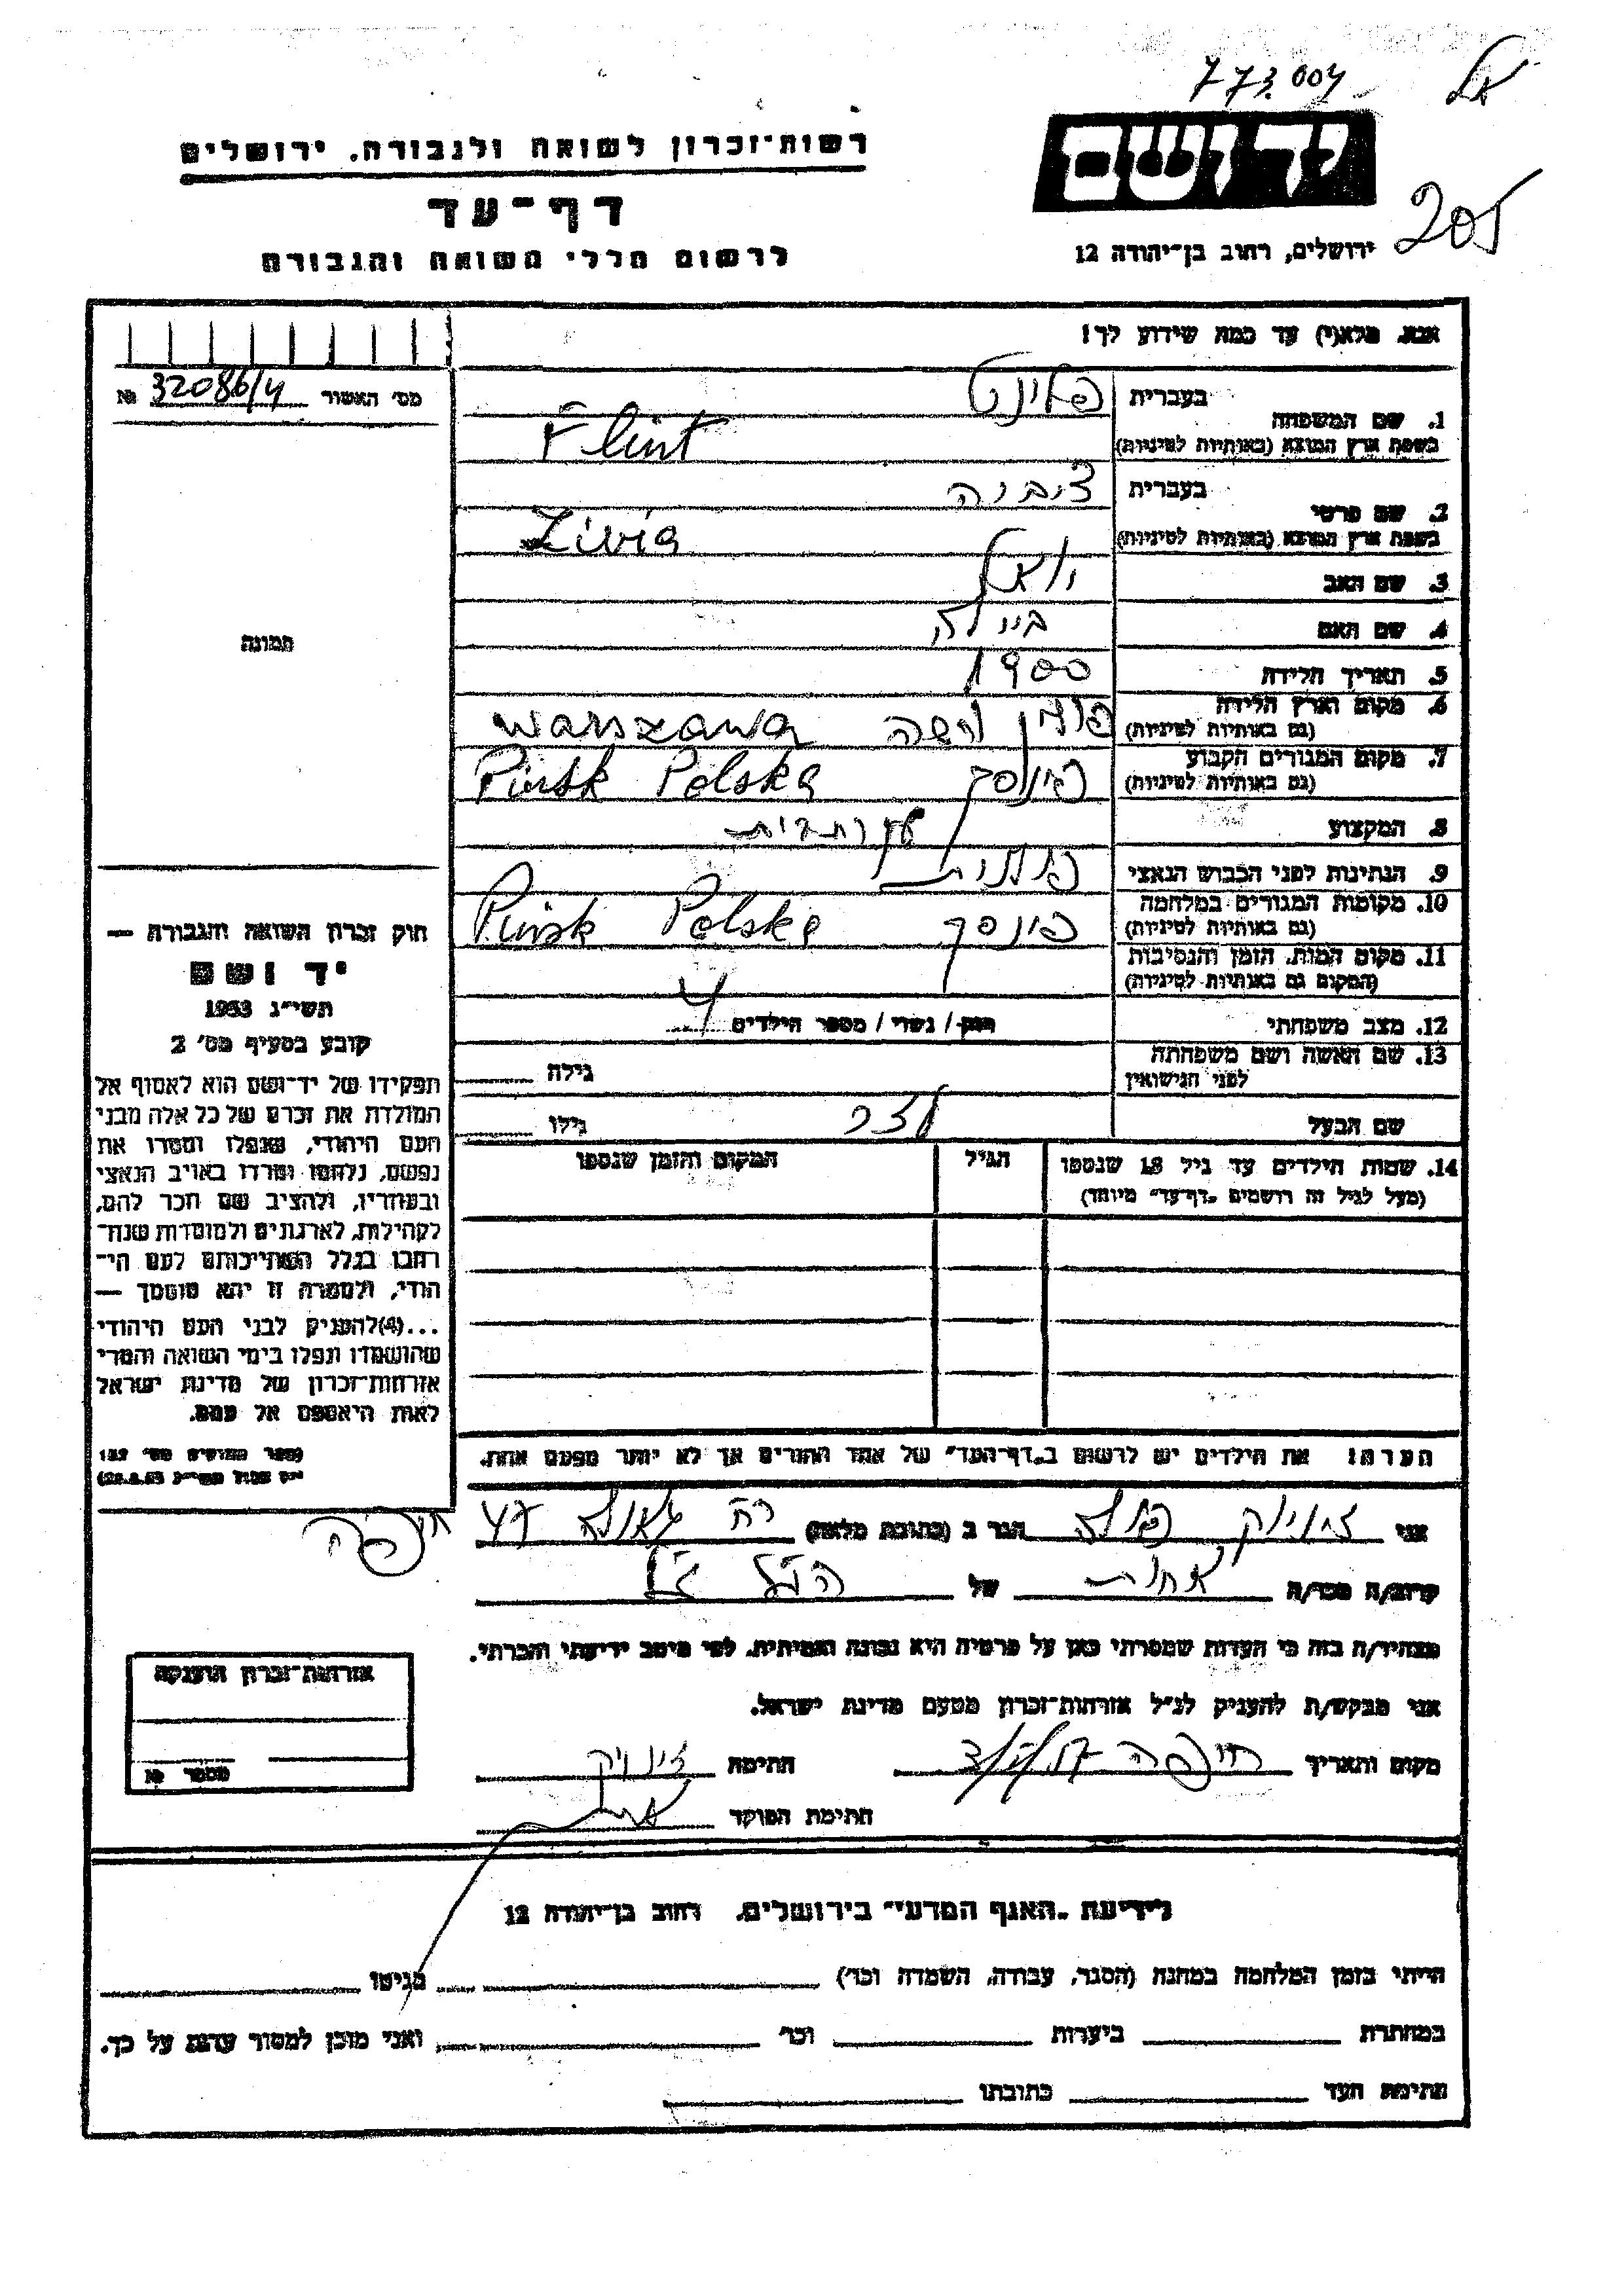 773.004
אל
יד ושם
205
רשות־זכרון לשואה ולגבורה, ירושלים
דף־עד
לרשום חללי השואה והגבורה
ירושלים, רחוב בן־יהודה 12
אנא, מלא(י) עד כמה שידוע לך!
מס׳ האשור 32086/4 №
1. שם המשפחה
בעברית פלינט
בשפת ארץ המוצא (באותיות לטיניות) Flint
2. שם פרטי
בעברית ציביה
בשפת ארץ המוצא (באותיות לטיניות) Zivia
3. שם האב יואל
4. שם האם ביילה
5. תאריך הלידה 1900
6. מקום וארץ הלידה (גם באותיות לטיניות) פולין ורשה Warszawa
7. מקום המגורים הקבוע (גם באותיות לטיניות) פינסק Pinsk Polska
8. המקצוע עקרת בית
9. הנתינות לפני הכבוש הנאצי פולנית
10. מקומות המגורים במלחמה (גם באותיות לטיניות) פינסק Pinsk Polska
11. מקום המות, הזמן והנסיבות (המקום גם באותיות לטיניות)
12. מצב משפחתי רוק / נשוי / מספר הילדים 4
13. שם האשה ושם משפחתה לפני הנישואין גילה
שם הבעל גילו
14. שמות הילדים עד גיל 18 שנספו
(מעל לגיל זה רושמים "דף־עד" מיוחד)
הגיל
המקום והזמן שנספו
הערה: את הילדים יש לרשום ב"דף־העד" של אחד ההורים אך לא יותר מפעם אחת.
תמונה
חוק זכרון השואה והגבורה —
יד ושם
תשי״ג 1953
קובע בסעיף מס׳ 2
תפקידו של יד־ושם הוא לאסוף אל
המולדת את זכרם של כל אלה מבני
העם היהודי, שנפלו ומסרו את
נפשם, נלחמו ומרדו באויב הנאצי
ובעוזריו, ולהציב שם וזכר להם,
לקהילות, לארגונים ולמוסדות שנח־
רבו בגלל השתייכותם לעם הי־
הודי, ולמטרה זו יהא מוסמך —
...(4)להעניק לבני העם היהודי
שהושמדו ונפלו בימי השואה והמרי
אזרחות־זכרון של מדינת ישראל
לאות היאספם אל עמם.
(ספר החוקים מס׳ 132
אני פולה הגר ב (כתובת מלאה) רח׳ גאולה 47 חיפה
קרוב/ה מכר/ה אחות של הנ״ל
מצהיר/ה בזה כי העדות שמסרתי כאן על פרטיה היא נכונה ואמיתית, לפי מיטב ידיעתי והכרתי.
אני מבקש/ת להעניק לנ״ל אזרחות־זכרון מטעם מדינת ישראל.
מקום ותאריך חיפה חתימה
חתימת הפוקד
אזרחות־זכרון הוענקה
מספר №
לידיעת "האגף המדעי" בירושלים, רחוב בן־יהודה 12
הייתי בזמן המלחמה במחנה (הסגר, עבודה, השמדה וכו׳) בגיטו
במחתרת ביערות וכו׳ ואני מוכן למסור עדות על כך.
חתימת העד כתובתו